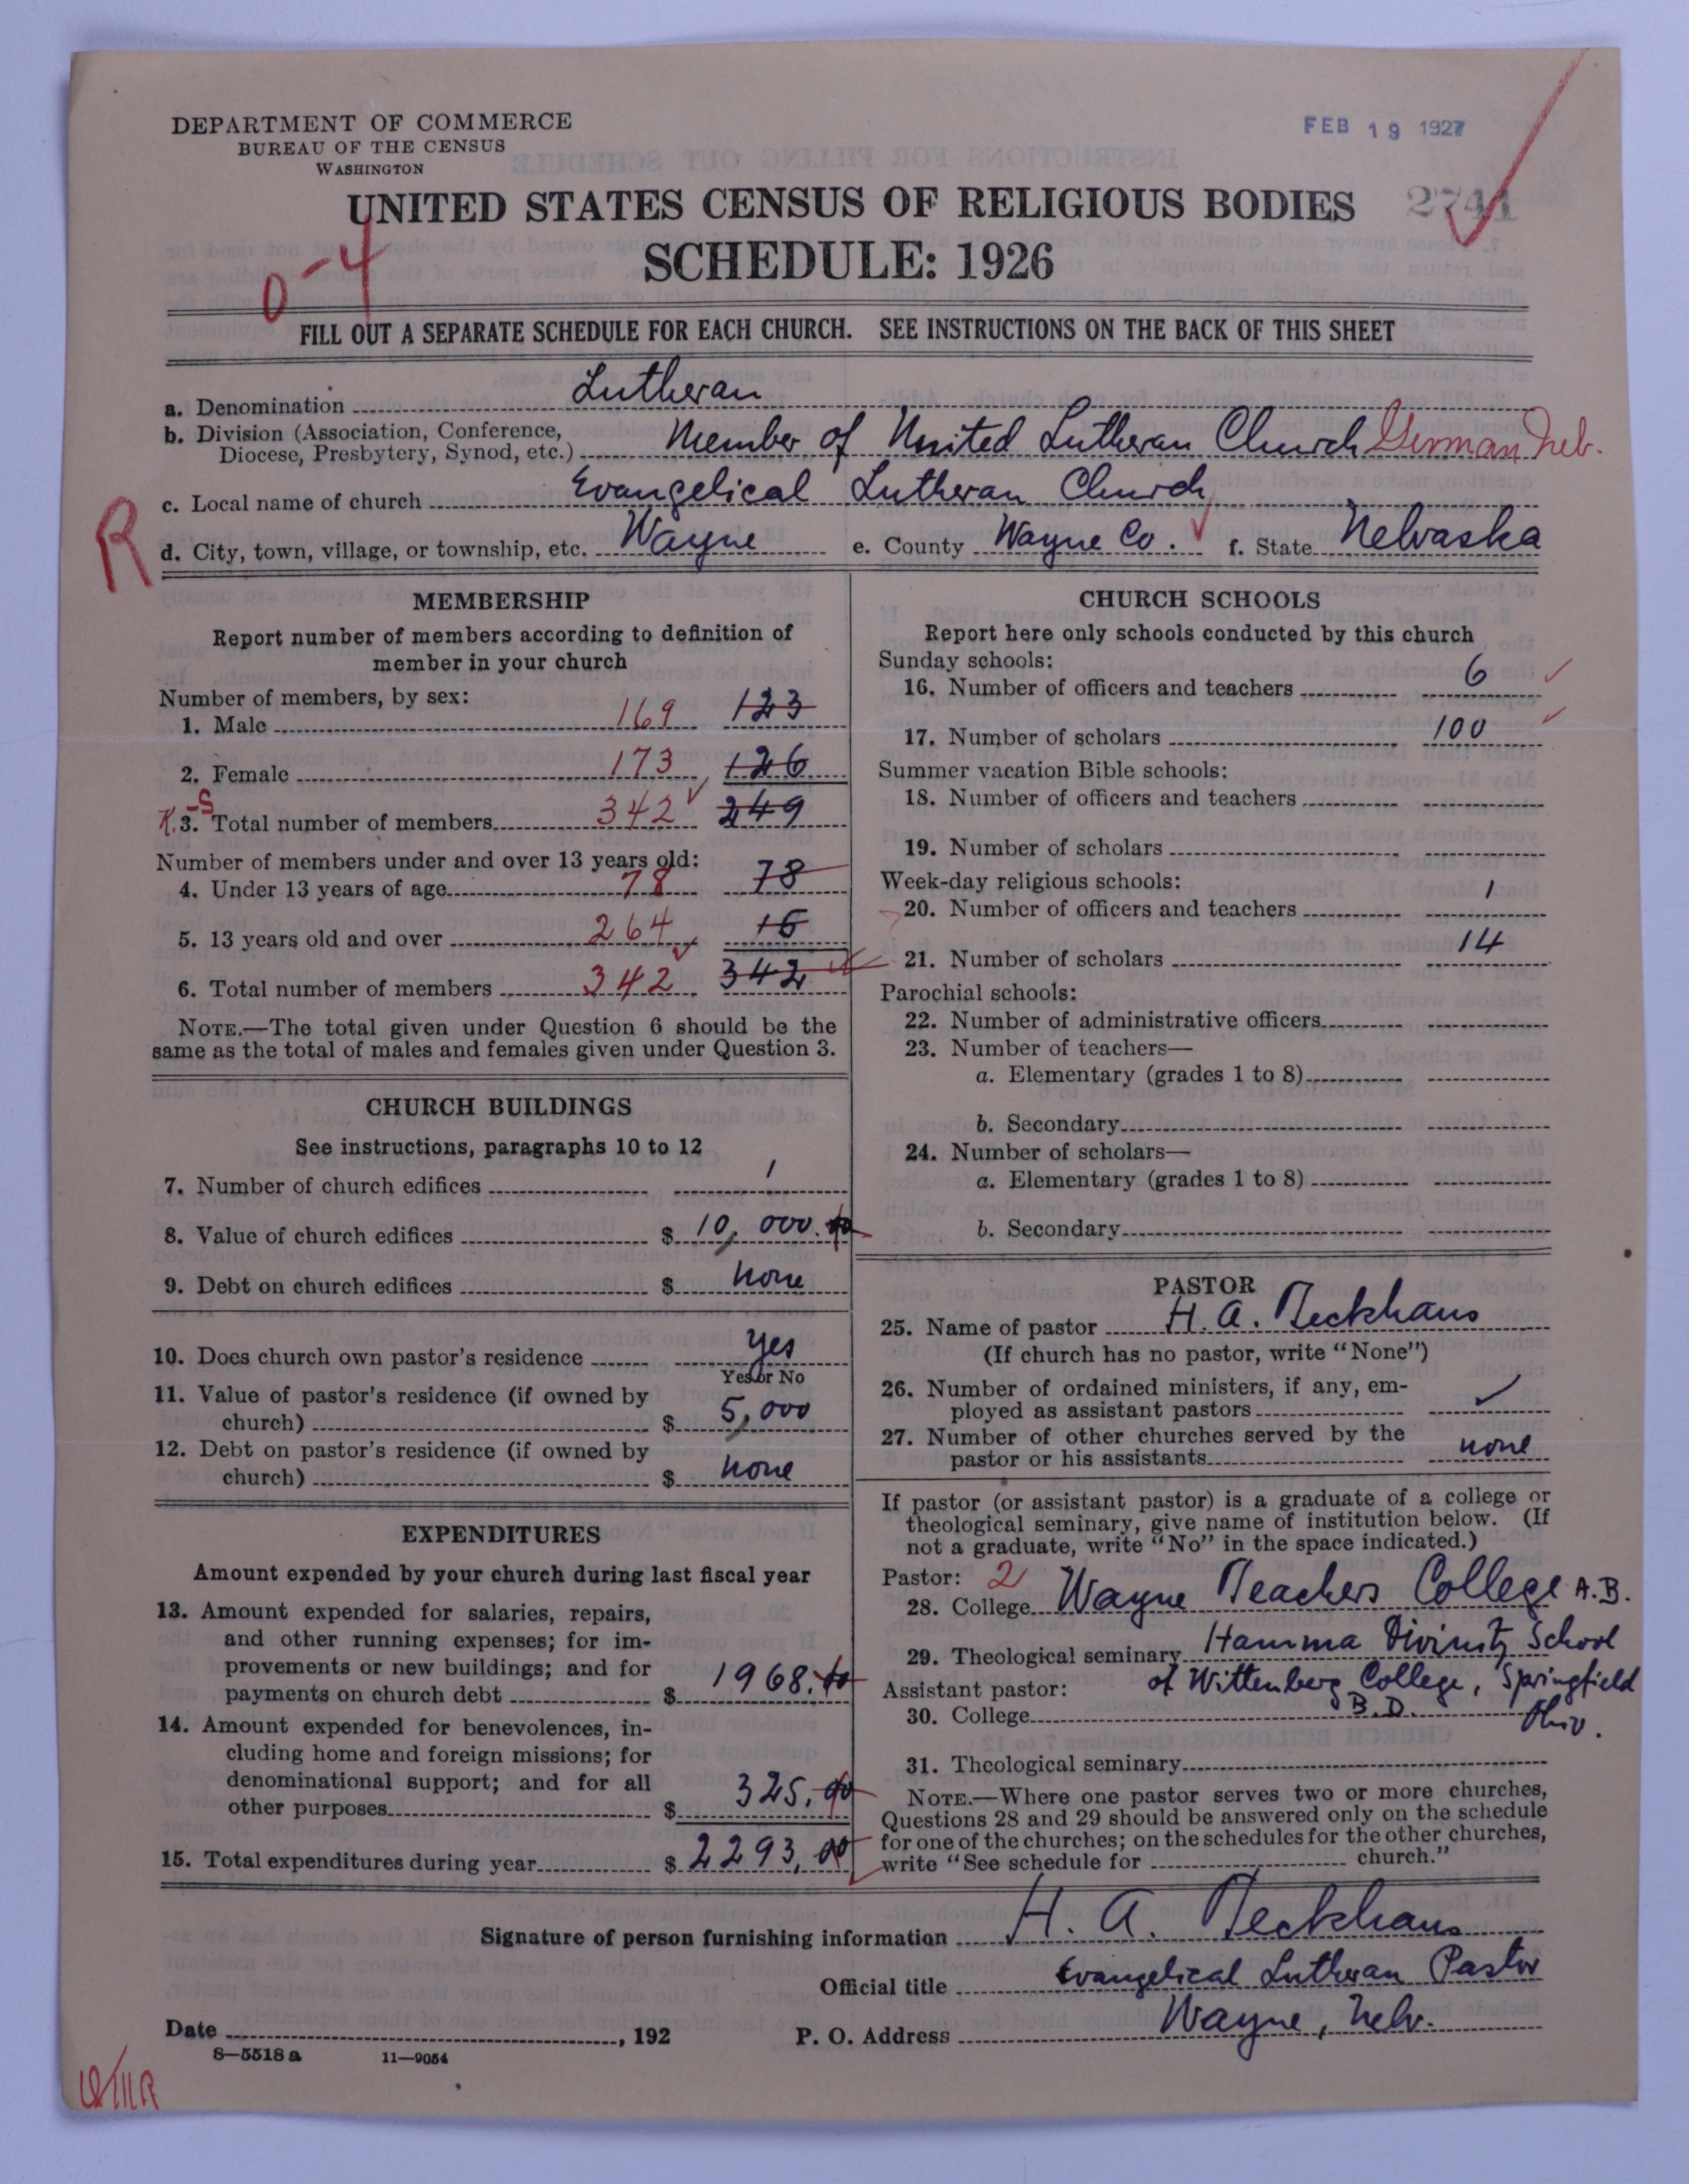 DEPARTMENT OF COMMERCE
BUREAU OF THE CENSUS
WASHINGTON
FEB 19 1927
UNITED STATES CENSUS OF RELIGIOUS BODIES
SCHEDULE: 1926
0-4
FILL OUT A SEPARATE SCHEDULE FOR EACH CHURCH. SEE INSTRUCTIONS ON THE BACK OF THIS SHEET
a. Denomination Lutheran
b. Division (Association, Conference,
Diocese, Presbytery, Synod, etc.) Member of United Lutheran Church German Neb.
c. Local name of church Evangelical Lutheran Church
R
d. City, town, village, or township, etc. Wayne e. County Wayne Co. f. State Nebraska
MEMBERSHIP
Report number of members according to definition of
member in your church
Number of members, by sex:
1. Male 169 123
2. Female 173 126
3. Total number of members 342 249
Number of members under and over 13 years old:
4. Under 13 years of age 78 78
5. 13 years old and over 264 16
6. Total number of members 342 342
NOTE.—The total given under Question 6 should be the
same as the total of males and females given under Question 3.
CHURCH BUILDINGS
See instructions, paragraphs 10 to 12
7. Number of church edifices 1
8. Value of church edifices $ 10,000.00
9. Debt on church edifices $ none
10. Does church own pastor's residence yes
Yes or No
11. Value of pastor's residence (if owned by
church) $ 5,000
12. Debt on pastor's residence (if owned by
church) $ none
EXPENDITURES
Amount expended by your church during last fiscal year
13. Amount expended for salaries, repairs,
and other running expenses; for im-
provements or new buildings; and for
payments on church debt $ 1968.00
14. Amount expended for benevolences, in-
cluding home and foreign missions; for
denominational support; and for all
other purposes $ 325.00
15. Total expenditures during year $ 2293.00
CHURCH SCHOOLS
Report here only schools conducted by this church
Sunday schools:
16. Number of officers and teachers 6
17. Number of scholars 100
Summer vacation Bible schools:
18. Number of officers and teachers
19. Number of scholars
Week-day religious schools:
20. Number of officers and teachers 1
21. Number of scholars 14
Parochial schools:
22. Number of administrative officers
23. Number of teachers—
a. Elementary (grades 1 to 8)
b. Secondary
24. Number of scholars—
a. Elementary (grades 1 to 8)
b. Secondary
PASTOR
25. Name of pastor H. A. Teckhaus
(If church has no pastor, write "None")
26. Number of ordained ministers, if any, em-
ployed as assistant pastors
27. Number of other churches served by the
pastor or his assistants none
If pastor (or assistant pastor) is a graduate of a college or
theological seminary, give name of institution below. (If
not a graduate, write "No" in the space indicated.)
Pastor: 2
28. College Wayne Teachers College A.B.
29. Theological seminary Hamma Divinity School
Assistant pastor: of Wittenberg College, Springfield
30. College B.D. Ohio.
31. Theological seminary
NOTE.—Where one pastor serves two or more churches,
Questions 28 and 29 should be answered only on the schedule
for one of the churches; on the schedules for the other churches,
write "See schedule for church."
Signature of person furnishing information H. A. Teckhaus
Official title Evangelical Lutheran Pastor
Date , 192 P. O. Address Wayne, Nebr.
8—5518 a 11—9054